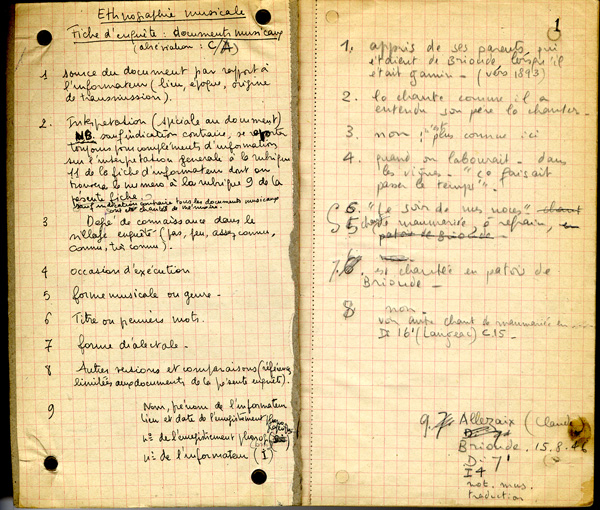 Ethnographie musicale
Fiche d'enquête : documents musicaux
(abréviation : C/A)
1 source du document par rapport à
l'informateur (lieu, époque, origine
de transmission).
2. Interprétation (spéciale au document)
NB. sauf indication contraire, se reporter
toujours pour compléments d'information
sur l'interprétation générale à la rubrique
11 de la fiche d'informateur dont on
trouvera le numéro à la rubrique 9 de la
présente fiche.
sauf indication contraire tous les documents musicaux
sont chantés de mémoire.
3 Degré de connaissance dans le
village enquêté (pas, peu, assez connu,
connu, très connu).
4 occasion d'exécution
5 forme musicale ou genre.
6 Titre ou premiers mots.
7 forme dialectale.
8 Autres versions et comparaisons (références
limitées aux documents de la présente enquête).
9 Nom, prénom de l'informateur
lieu et date de l'enregistrement
n° de l'enregistrement
n° de l'informateur (I)
1
1. appris de ses parents, qui
étaient de Brioude, lorsqu'il
était gamin - (vers 1893)
2. la chante comme il a
entendu son père la chanter.
3. non, plus connue ici
4. quand on labourait - dans
les vignes. - "ça faisait
passer le temps".
6. "Le soir de mes noces" chant
5 de mariée, à refrain, en
patois de Brioude -
7. est chantée en patois de
Brioude -
8 non -
voir autre chant de
Di 16' (Langeac) C.15 -
9. 7. Allezaix (Claude)
Di 7'
Brioude. 15.8.46
Di 7'
I 4
not. mus.
traduction